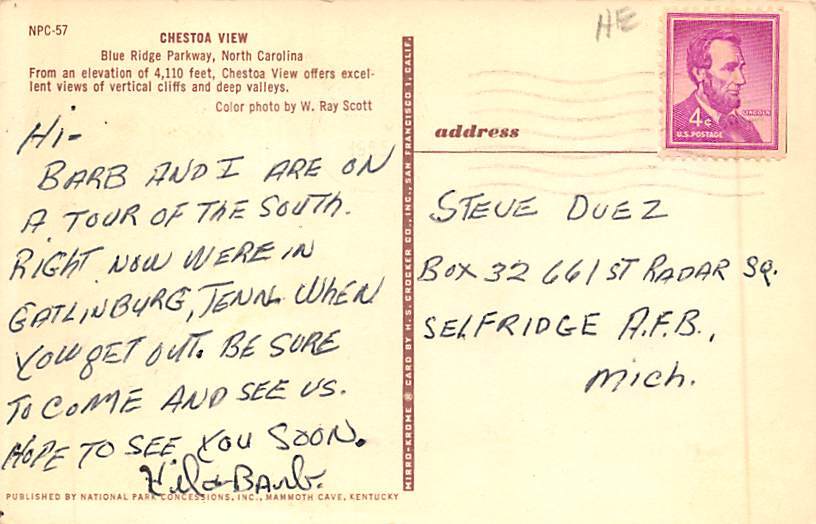 NPC-57
CHESTOA VIEW
Blue Ridge Parkway, North Carolina
From an elevation of 4,110 feet, Chestoa View offers excel-
lent views of vertical cliffs and deep valleys.
Color photo by W. Ray Scott
Hi-
BARB AND I ARE ON
A TOUR OF THE SOUTH.
RIGHT NOW WERE IN
GATLINBURG, TENN. WHEN
YOU GET OUT. BE SURE
TO COME AND SEE US.
HOPE TO SEE YOU SOON.
Barb.
PUBLISHED BY NATIONAL PARK CONCESSIONS, INC., MAMMOTH CAVE, KENTUCKY
MIRRO-KROME ® CARD BY H. S. CROCKER CO., INC., SAN FRANCISCO 1, CALIF.
HE
4¢
LINCOLN
U.S. POSTAGE
address
STEVE DUEZ
BOX 32 661ST RADAR SQ.
SELFRIDGE A.F.B.,
Mich.